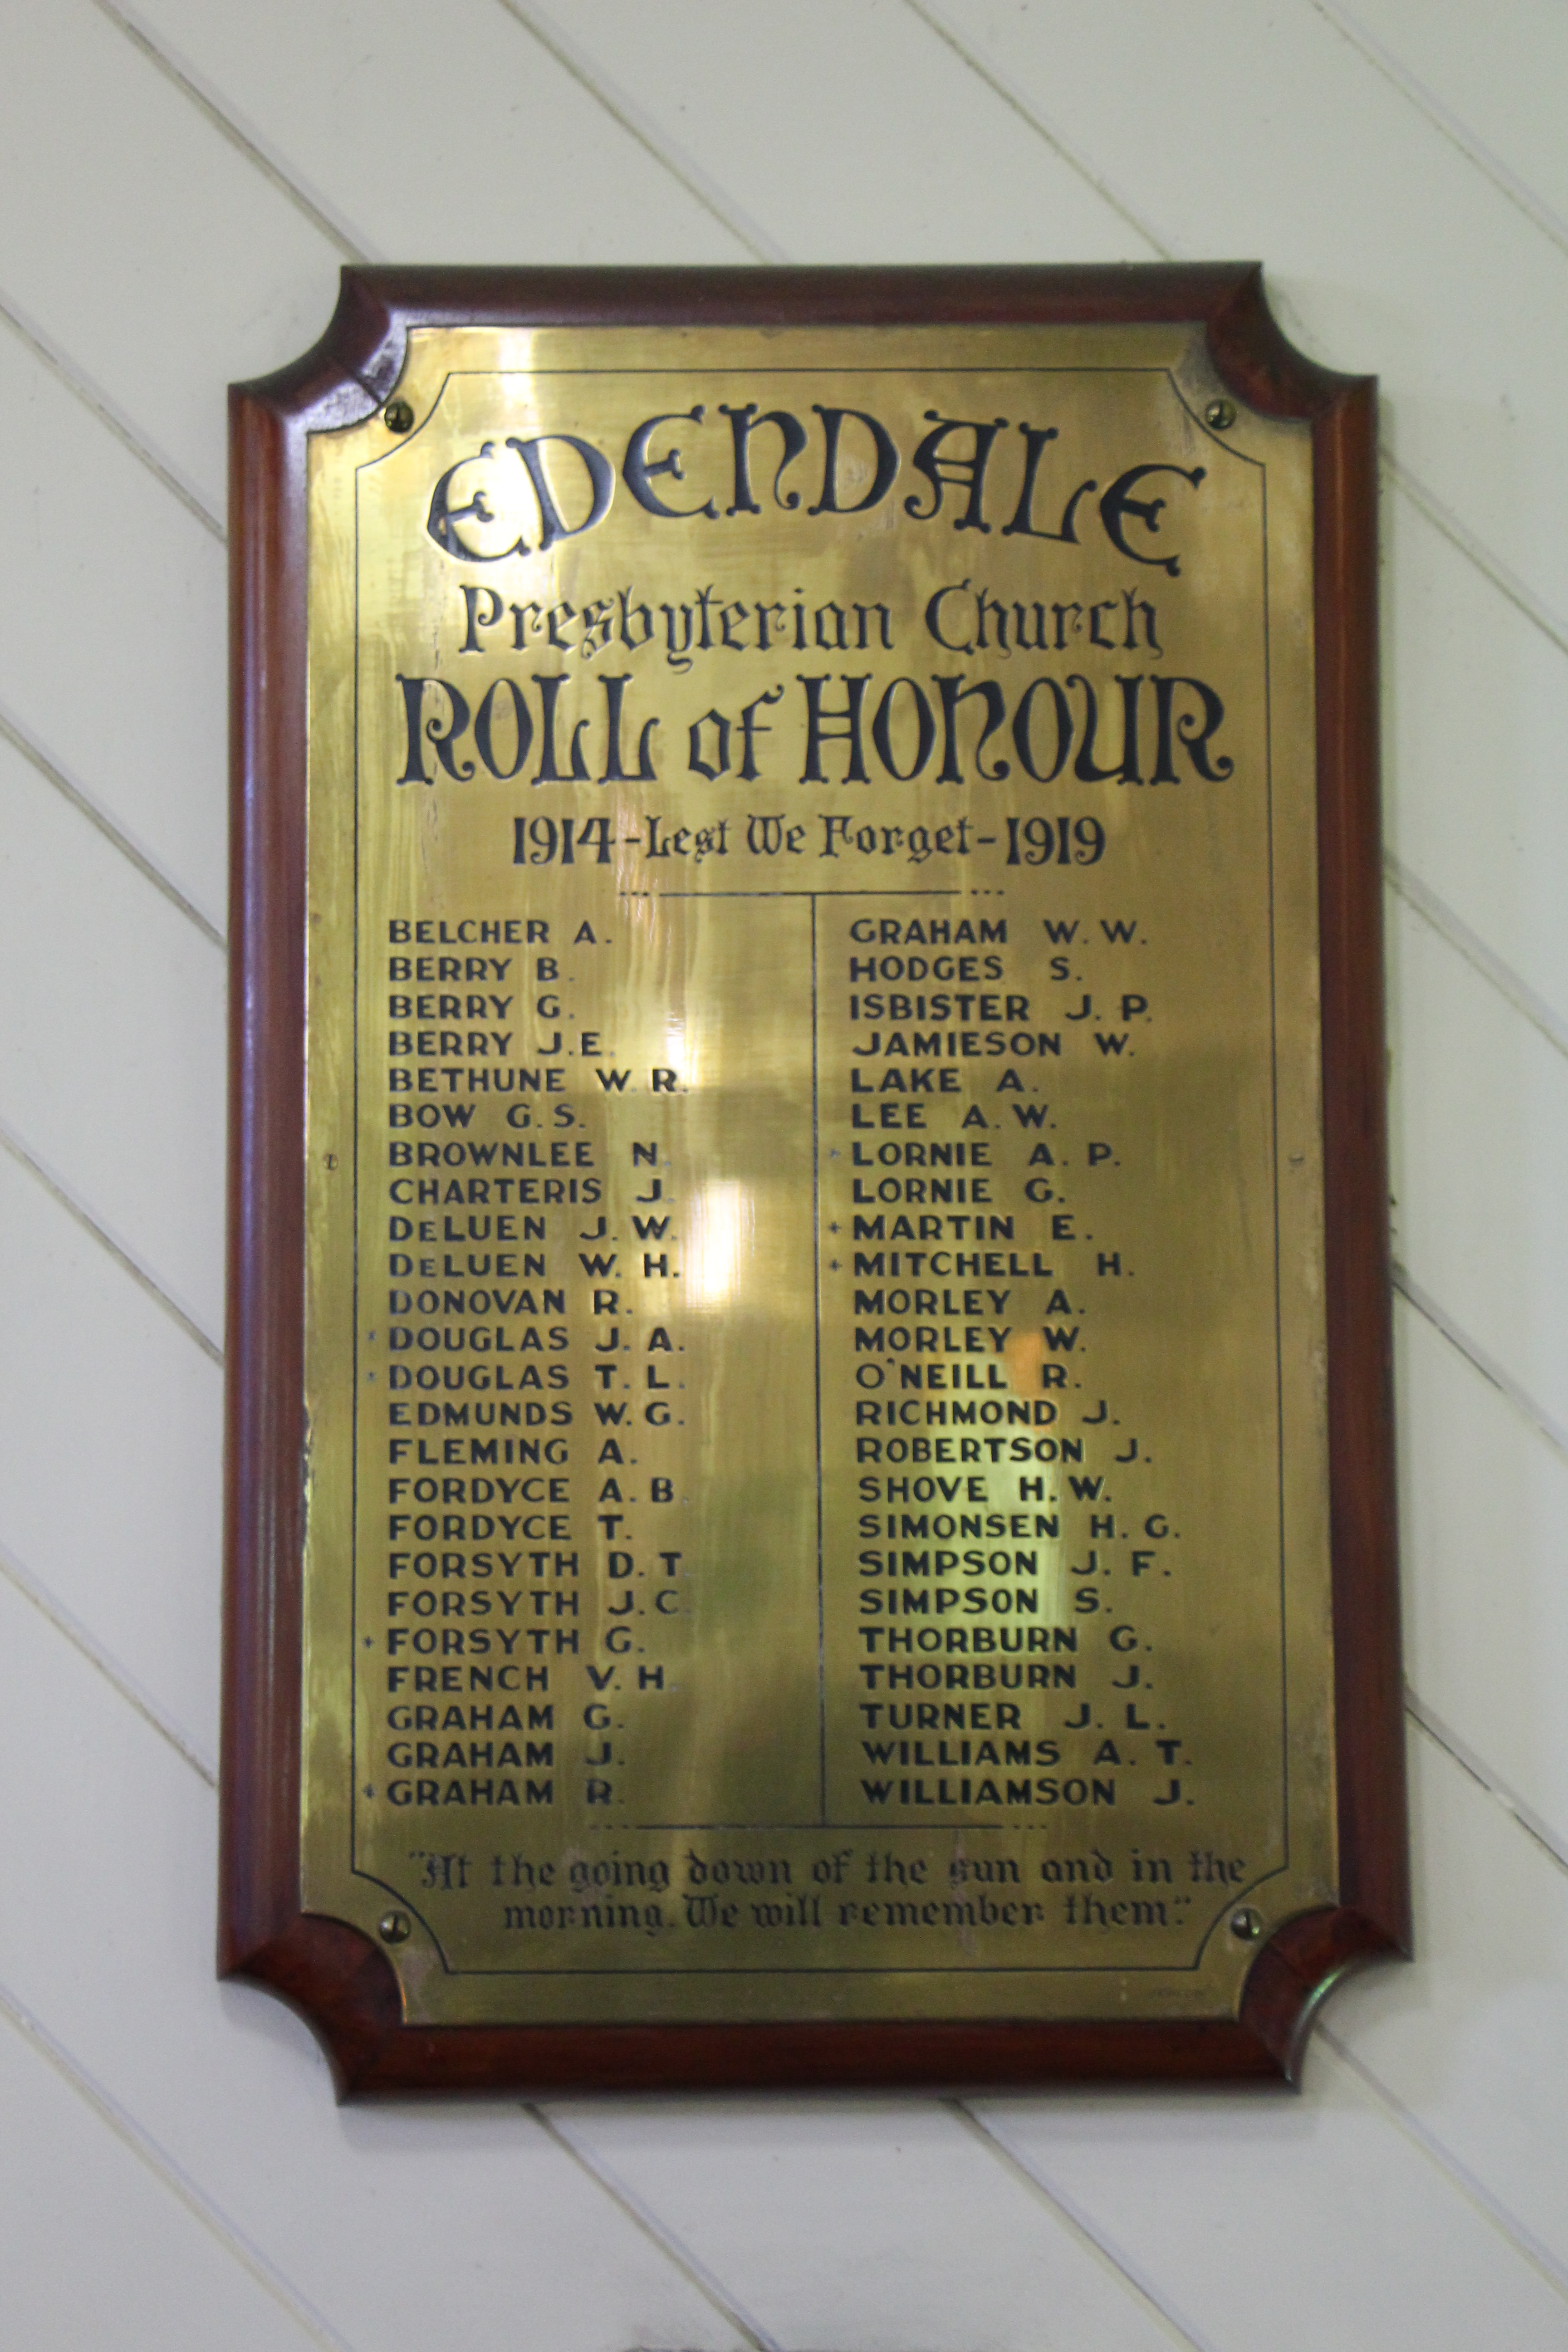 EDENDALE
Presbyterian Church
ROLL of HONOUR
1914-Lest We Forget-1919
BELCHER A.
BERRY B.
BERRY G.
BERRY J.E.
BETHUNE W.R.
BOW G.S.
BROWNLEE N.
CHARTERIS J.
DELUEN J.W.
DELUEN W.H.
DONOVAN R.
+DOUGLAS J.A.
+DOUGLAS T.L.
EDMUNDS W.G.
FLEMING A.
FORDYCE A.B.
FORDYCE T.
FORSYTH D.T.
FORSYTH J.C.
+FORSYTH G.
FRENCH V.H.
GRAHAM G.
GRAHAM J.
+GRAHAM R.
GRAHAM W.W.
HODGES S.
ISBISTER J.P.
JAMIESON W.
LAKE A.
LEE A.W.
+LORNIE A.P.
LORNIE G.
+MARTIN E.
+MITCHELL H.
MORLEY A.
MORLEY W.
O'NEILL R.
RICHMOND J.
ROBERTSON J.
SHOVE H.W.
SIMONSEN H.G.
SIMPSON J.F.
SIMPSON S.
THORBURN G.
THORBURN J.
TURNER J.L.
WILLIAMS A.T.
WILLIAMSON J.
"At the going down of the sun and in the
morning. We will remember them."